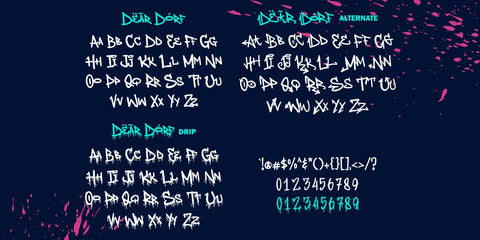 Dëãr Dörf
Aa Bb Cc Dd Ee Ff Gg
Hh Ii Jj Kk Ll Mm Nn
Oo Pp Qq Rr Ss Tt Uu
Vv Ww Xx Yy Zz
Dëãr Dörf ALTERNATE
Aa Bb Cc Dd Ee Ff Gg
Hh Ii Jj Kk Ll Mm Nn
Oo Pp Qq Rr Ss Tt Uu
Vv Ww Xx Yy Zz
Dëãr Dörf DRIP
Aa Bb Cc Dd Ee Ff Gg
Hh Ii Jj Kk Ll Mm Nn
Oo Pp Qq Rr Ss Tt Uu
Vv Ww Xx Yy Zz
!@#$%^&*()+{}[],<>/?
0123456789
0123456789